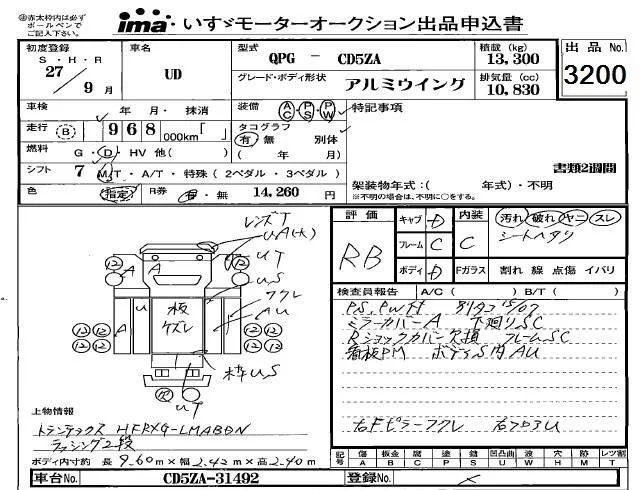 ④赤太枠内は必ず
ボールペンで
ご記入下さい。
ima いすゞモーターオークション出品申込書
初度登録
S・H・R
27
9月
車名
UD
型式
QPG － CD5ZA
グレード・ボディ形状
アルミウイング
積載 (kg)
13,300
排気量 (cc)
10,830
出品 No.
3200
車検
年 月・抹消
走行 (B) 968 000km「 」
燃料
G・D・HV 他( )
シフト 7 M/T・A/T・特殊 (2ペダル・3ペダル)
色 指定 R券 有・無 14,260 円
装備 AC・PS・PW
タコグラフ
有 無 別体
( 年 月)
特記事項
書類2週間
架装物年式：( 年式)・不明
※不明の場合は、不明に○をする。
評価
RB
キャブ D
フレーム C
ボディ D
内装
C
Fガラス
汚れ 破れ ヤニ スレ
シートヘタリ
割れ 線 点傷 イバリ
検査員報告 A/C ( ) B/T ( )
P.S, P.W付 別タコ 15/07
ミラーカバーA 下廻りSC
Rショックカバー欠損 フレームSC
看板PM ボディS内AU
右Fピラーフクレ
レンズT
UA(大)
UT
US
フクレ
AU
A
A
A
U
板
ケズレ
枠US
UT
⑫ ⑫
⑫⑫ ⑫⑫
⑫⑫ ⑫⑫
上物情報
トランテックス HFRXG-LMABDN
ラッシング2段
ボディ内寸約 長 9.60m×幅 2.42m×高 2.40m
記号
傷 A
板金 B
腐 C
塗 P
錆 S
凹凸曲 U
波 W
穴 H
跡 M
レツ割 T
車台No. CD5ZA-31492
登録No.